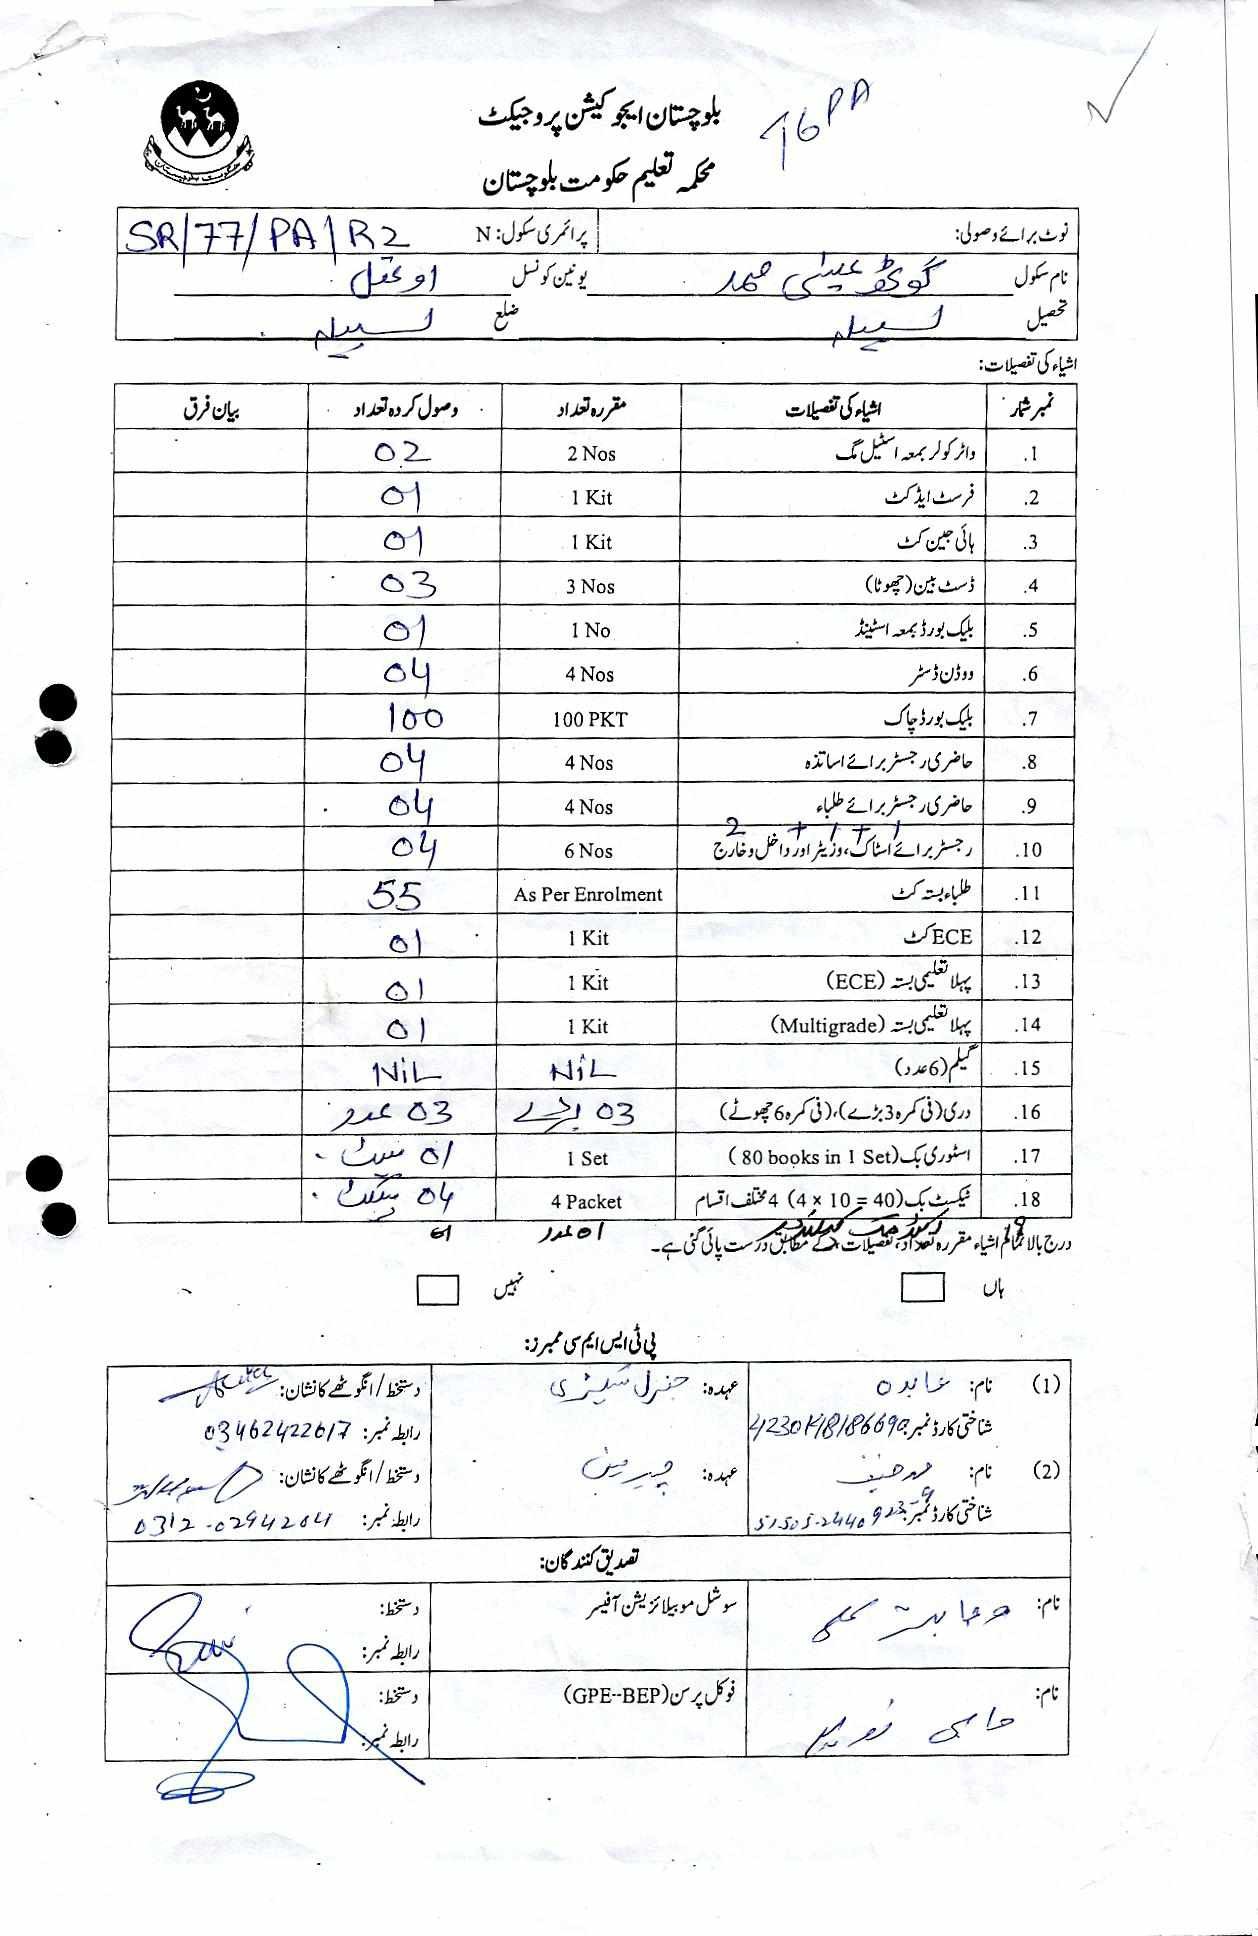 بلوچستان ایجوکیشن پروجیکٹ
76 PA
محکمہ تعلیم حکومت بلوچستان
نوٹ برائے وصولی: پرائمری سکول: N SR/77/PA/R2
نام سکول گوٹھ عیسٰی محمد یونین کونسل اوتھل
تحصیل لسبیلہ ضلع لسبیلہ
اشیاء کی تفصیلات:
نمبر شمار اشیاء کی تفصیلات مقررہ تعداد وصول کردہ تعداد بیان فرق
1. واٹر کولر بمعہ اسٹیل مگ 2 Nos 02
2. فرسٹ ایڈ کٹ 1 Kit 01
3. ہائی جین کٹ 1 Kit 01
4. ڈسٹ بین (چھوٹا) 3 Nos 03
5. بلیک بورڈ بمعہ اسٹینڈ 1 No 01
6. ووڈن ڈسٹر 4 Nos 04
7. بلیک بورڈ چاک 100 PKT 100
8. حاضری رجسٹر برائے اساتذہ 4 Nos 04
9. حاضری رجسٹر برائے طلباء 4 Nos 04
2 + 1 + 1
10. رجسٹر برائے اسٹاک، وزیٹر اور داخل و خارج 6 Nos 04
11. طلباء بستہ کٹ As Per Enrolment 55
12. ECE کٹ 1 Kit 01
13. پہلا تعلیمی بستہ (ECE) 1 Kit 01
14. پہلا تعلیمی بستہ (Multigrade) 1 Kit 01
15. گیلم (6 عدد) NiL NiL
16. دری (فی کمرہ 3 بڑے)، (فی کمرہ 6 چھوٹے) 03 بڑے 03 عدد
17. اسٹوری بک (80 books in 1 Set) 1 Set 01 سیٹ
18. ٹیکسٹ بک (4 × 10 = 40) 4 مختلف اقسام 4 Packet 04 پیکٹ
01 عدد 01
درج بالا تمام اشیاء مقررہ تعداد، تفصیلات کے مطابق درست پائی گئی ہے۔
ہاں نہیں
پی ٹی ایس ایم سی ممبرز:
(1) نام: عابدہ عہدہ: جنرل سیکٹری دستخط/انگوٹھے کا نشان:
شناختی کارڈ نمبر: رابطہ نمبر: 03462422617
(2) نام: محمد حنیف عہدہ: چیرمین دستخط/انگوٹھے کا نشان:
شناختی کارڈ نمبر: رابطہ نمبر: 0312-0294204
تصدیق کنندگان:
نام: سوشل موبیلائزیشن آفیسر دستخط:
رابطہ نمبر:
نام: فوکل پرسن (GPE--BEP) دستخط:
رابطہ نمبر: